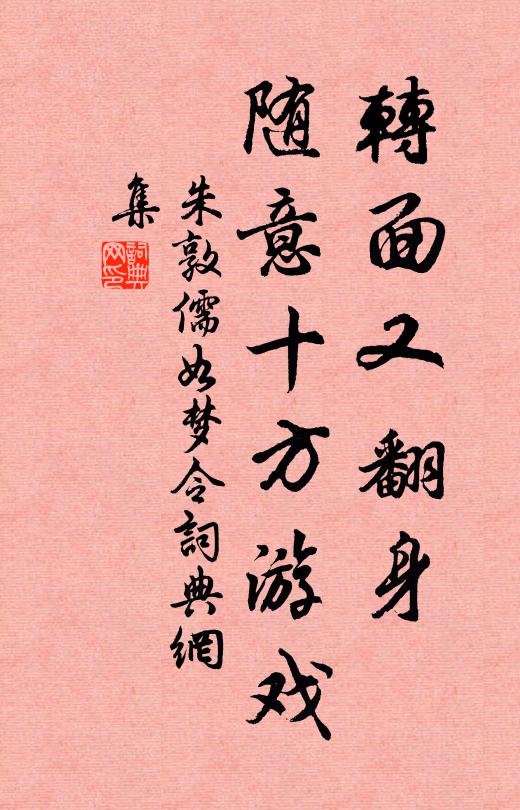 轉面又翻身
随意十方游戏
朱敦儒如梦令詞典網
集
詞典網印